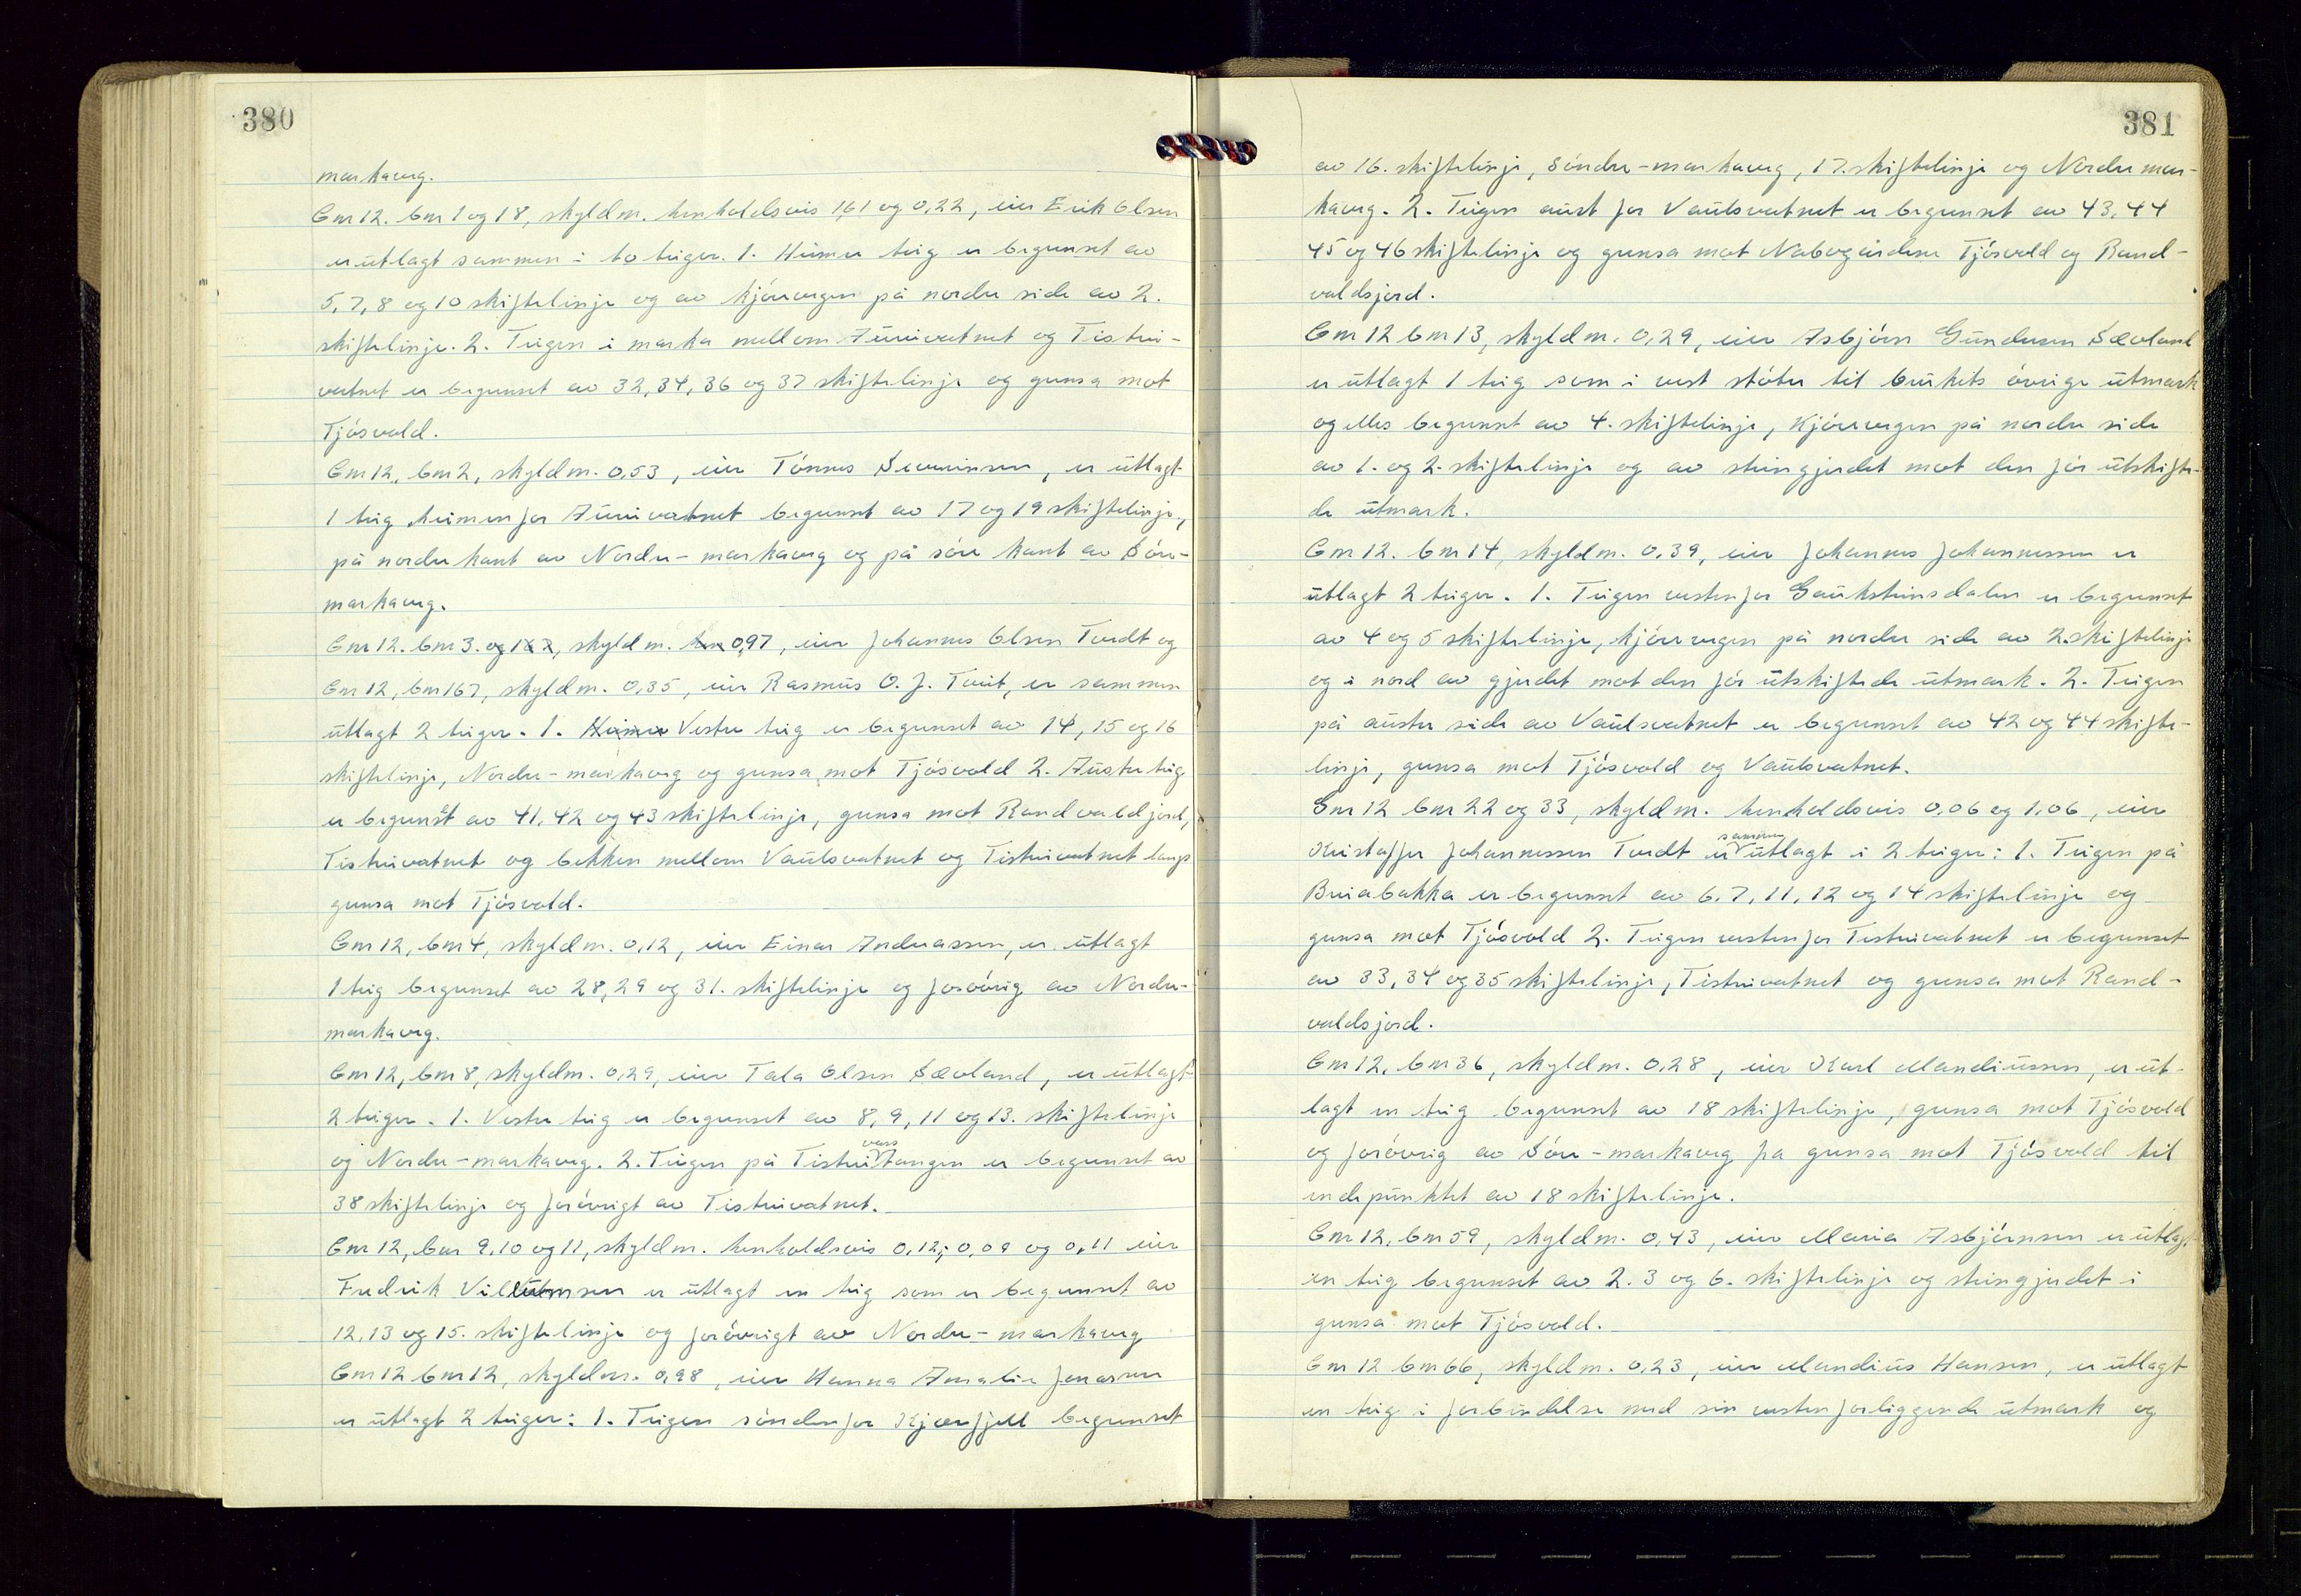 380
markaveg.
Gnr 12. bnr 1 og 18, skyld m. henholdsvis 1,61 og 0,22, eier Erik Olsen
er utlagt sammen i to teiger. 1. Heime teig er begrenset av
5, 7, 8 og 10 skiftelinje og av kjørevegen på nordre side av 2.
skiftelinje. 2. Teigen i marka mellom Aureivatnet og Tistrei-
vatnet er begrenset av 32, 34, 36 og 37 skiftelinje og grensa mot
Tjøsvold.
Gnr 12, bnr 2, skyld m. 0,53, eier Tønnes Severinsen, er utlagt
1 teig heimenfor Aureivatnet begrenset av 17 og 19 skiftelinje,
på nordre kant av Nordre-markaveg og på søre kant av Søre-
markaveg.
Gnr 12. bnr 3. skyld m. 0,97, eier Johannes Olsen Tvedt og
Gnr 12, bnr 167, skyld m. 0,35, eier Rasmus O. J. Tveit, er sammen
utlagt 2 teiger. 1. Heime Vestre teig er begrenset av 14, 15 og 16
skiftelinje, Nordre-markaveg og grensa mot Tjøsvold 2. Austre teig
er begrenset av 41, 42 og 43 skiftelinje, grensa mot Randvaldjord,
Tistreivatnet og bekken mellom Vaulsvatnet og Tistreivatnet langs
grensa mot Tjøsvold.
Gnr 12, bnr 4, skyld m. 0,12, eier Einar Andreassen, er utlagt
1 teig begrenset av 28, 29 og 31. skiftelinje og forøvrig av Nordre-
markaveg.
Gnr 12, bnr 8, skyld m. 0,29, eier Tala Olsen Sævland, er utlagt
2 teiger. 1. Vestre teig er begrenset av 8, 9, 11 og 13. skiftelinje
og Nordre-markaveg. 2. Teigen på Tistreivasstangen er begrenset av
38 skiftelinje og forøvrigt av Tistreivatnet.
Gnr 12, bnr 9, 10 og 11, skyld m. henholdsvis 0,12; 0,09 og 0,11 eier
Fredrik Villumsen er utlagt en teig som er begrenset av
12, 13 og 15. skiftelinje og forøvrigt av Nordre-markaveg
Gnr 12 bnr 12, skyld m. 0,98, eier Hanna Amalie Jonassen
er utlagt 2 teiger: 1. Teigen sønden for Kjærfjell begrenset
381
av 16. skiftelinje, Søndre-markaveg, 17. skiftelinje og Nordre mar-
kaveg. 2. Teigen aust for Vaulsvatnet er begrenset av 43, 44
45 og 46 skiftelinje og grensa mot Nabogårdene Tjøsvold og Rand-
valdsjord.
Gnr 12 bnr 13, skyld m. 0,29, eier Asbjørn Gundersen Sævland
er utlagt 1 teig som i vest støter til brukets øvrige utmark
og elles begrenset av 4. skiftelinje, Kjørevegen på nordre side
av 1. og 2. skiftelinje og av steingjerdet mot den før utskifte-
de utmark.
Gnr 12. bnr 14, skyld m. 0,39, eier Johannes Johannessen er
utlagt 2 teiger. 1. Teigen vestenfor Gauksteinsdalen er begrenset
av 4 og 5 skiftelinje, kjørevegen på nordre side av 2. skiftelinje
og i nord av gjerdet mot den før utskiftede utmark. 2. Teigen
på austre side av Vaulsvatnet er begrenset av 42 og 44 skifte-
linje, grensa mot Tjøsvold og Vaulsvatnet.
Gnr 12 bnr 22 og 33, skyld m. henholdsvis 0,06 og 1,06, eier
Kristoffer Johannessen Tvedt er sammen utlagt i 2 teiger: 1. Teigen på
Breiabakka er begrenset av 6, 7, 11, 12 og 14 skiftelinje og
grensa mot Tjøsvold 2. Teigen vestenfor Tistreivatnet er begrenset
av 33, 34 og 35 skiftelinje, Tistreivatnet og grensa mot Rand-
valdsjord.
Gnr 12, bnr 36, skyld m. 0,28, eier Karl Mandiussen, er ut-
lagt en teig begrenset av 18 skiftelinje, grensa mot Tjøsvold
og forøvrig av Søre-markaveg fra grensa mot Tjøsvold til
endepunktet av 18 skiftelinje.
Gnr 12, bnr 59, skyld m. 0,43, eier Maria Asbjørnsen er utlagt
en teig begrenset av 2. 3 og 6. skiftelinje og steingjerdet i
grensa mot Tjøsvold.
Gnr 12 bnr 66, skyld m. 0,23, eier Mandius Hansen, er utlagt
en teig i forbindelse med sin vestenforliggende utmark og